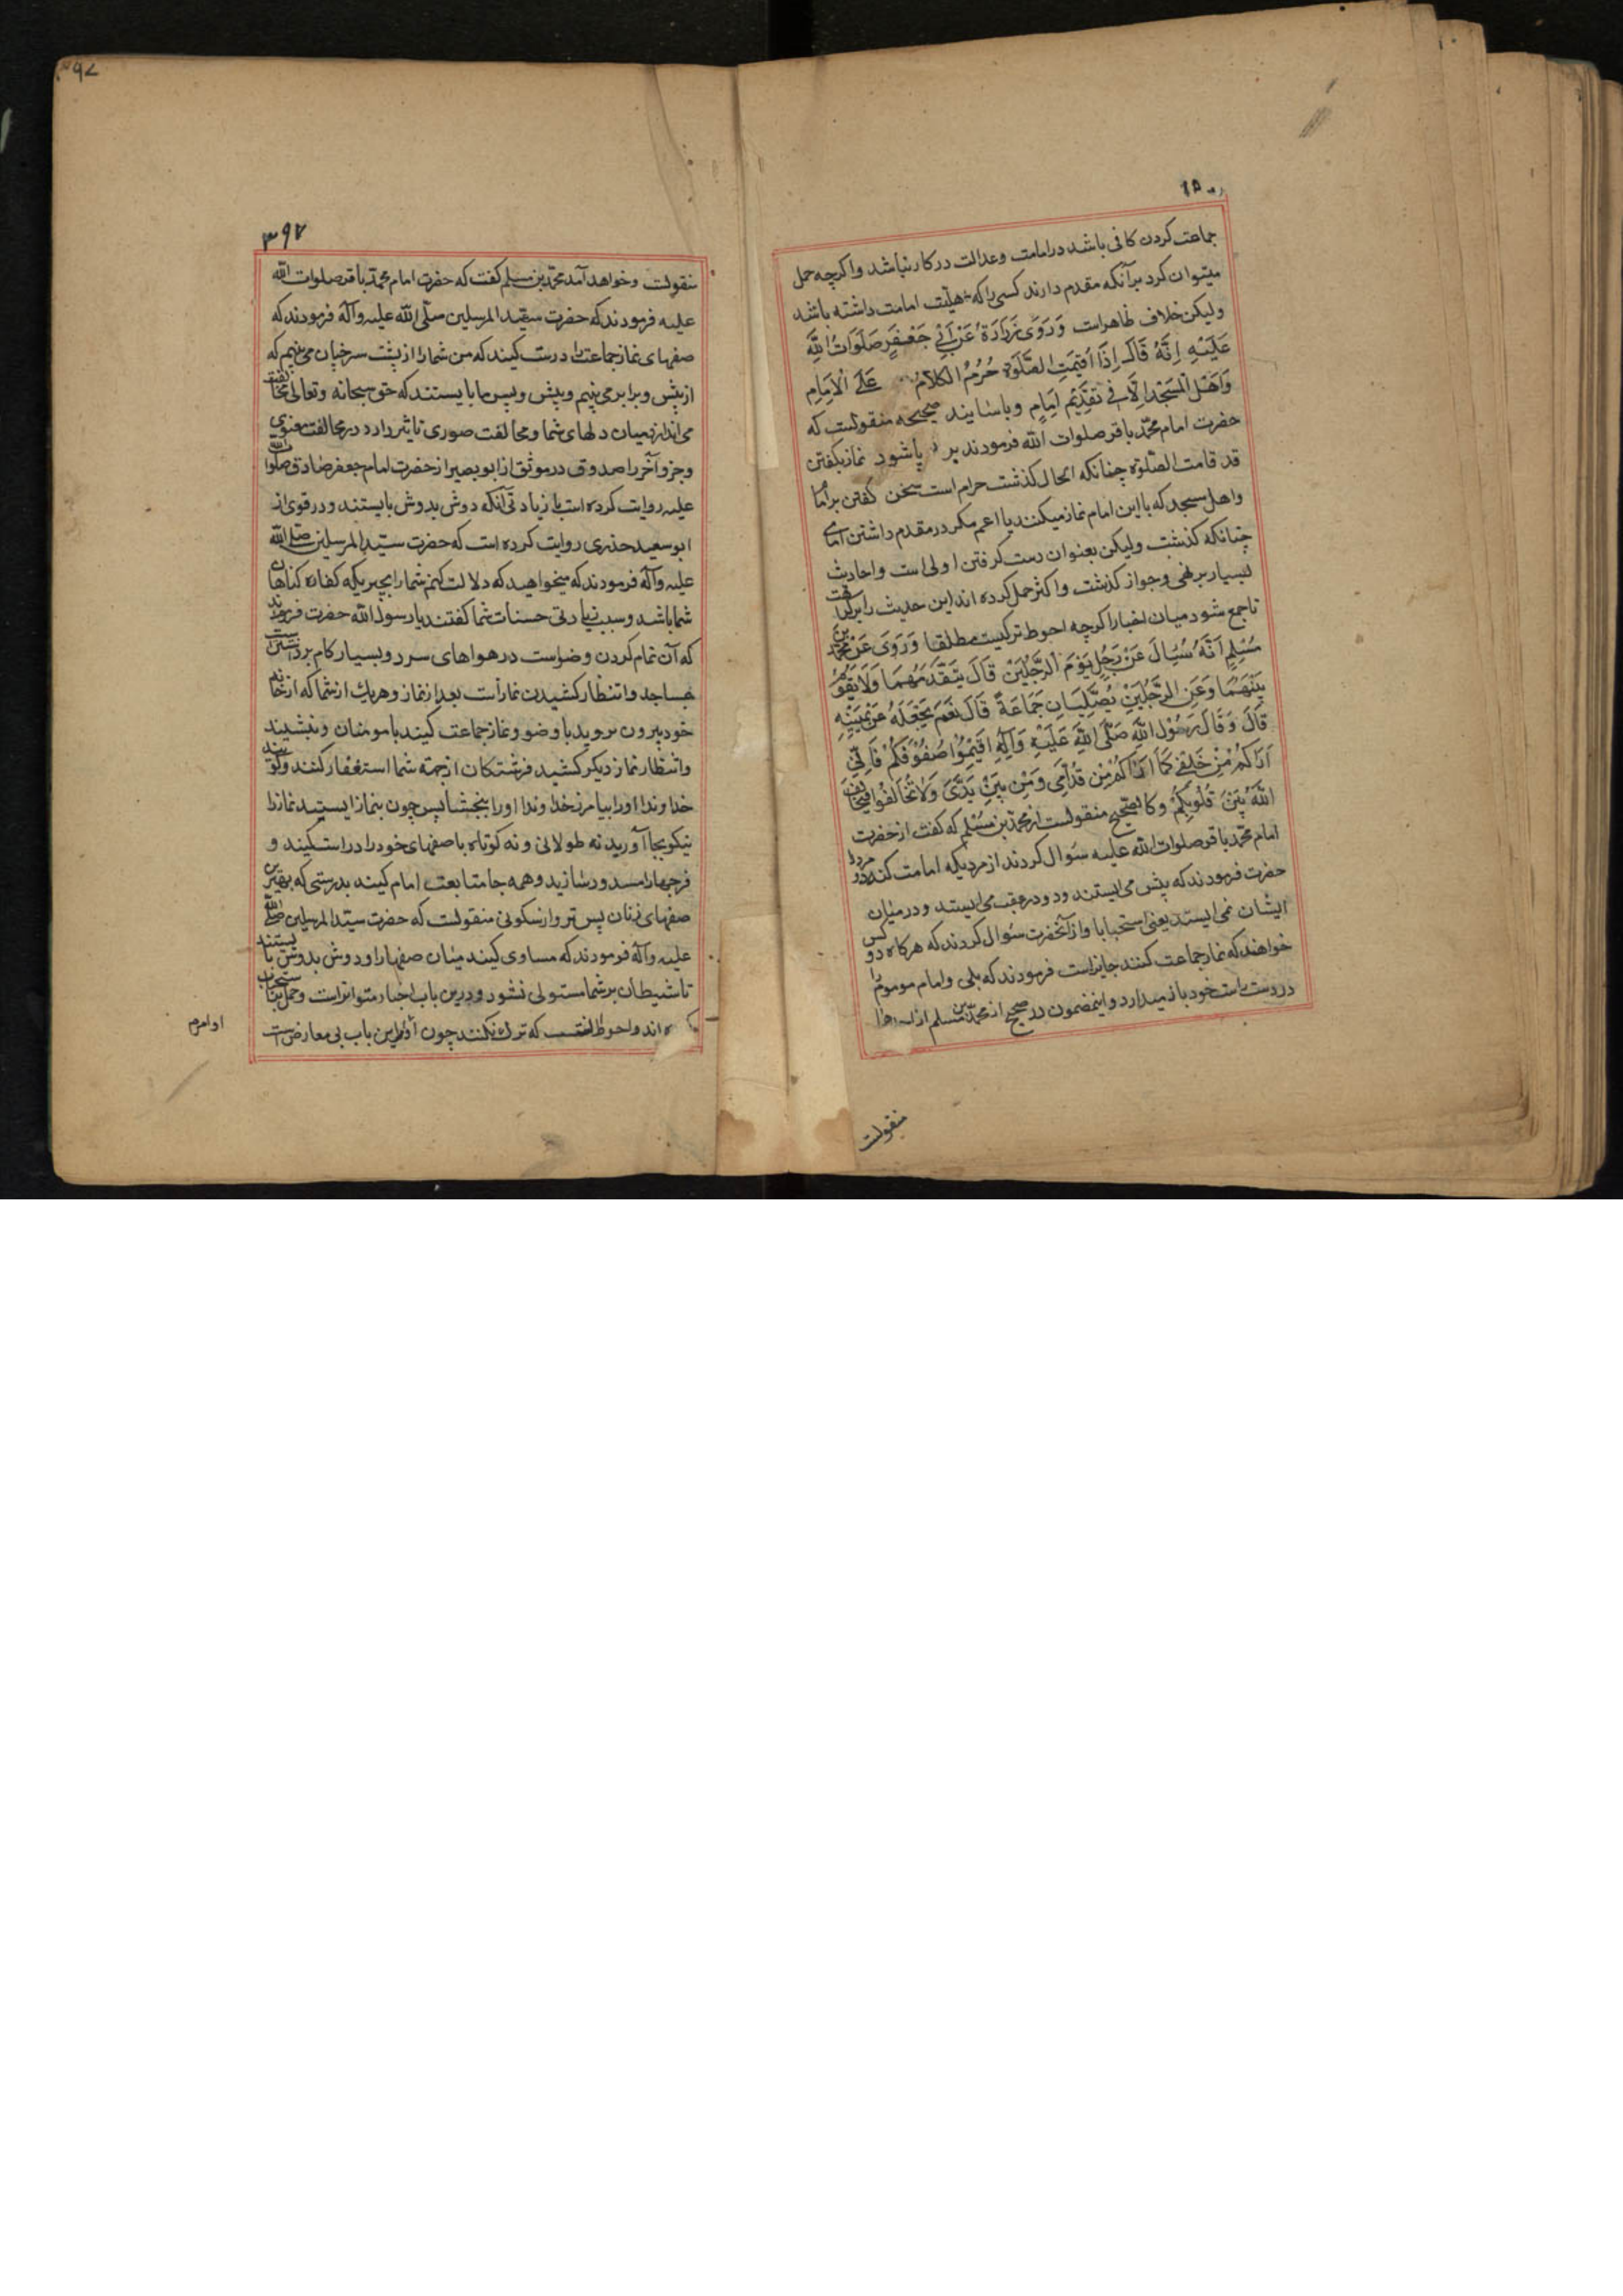 جماعت کردن کافی باشد در امامت و عدالت در کار نباشد و اکرچه حمل
میتوان کرد بر آنکه مقدم دارند کسی را که اهلیّت امامت داشته باشد
ولیکن خلاف ظاهر است وَرَوَی زُرَارَةُ عَنْ اَبِی جَعْفَرٍ صَلَوَاتُ اللّٰهِ
عَلَیْهِ اِنَّهُ قَالَ اِذَا اُقِیْمَتِ الصَّلٰوةُ حُرُمَ الْکَلاَمُ عَلَی الْاِمَامِ
وَاَهْلِ الْمَسْجِدِ اِلَّا فِی تَقْدِیْمِ اِمَامٍ و باسانید صحیحه منقولست که
حضرت امام محمّد باقر صلوات اللّه فرمودند بر پا شود نماز بکفتن
قد قامت الصّلوة چنانکه الحال کذشت حرام است سخن کفتن بر امام
و اهل مسجد که با این امام نماز میکنند یا اعم مکر در مقدم داشتن امامی
چنانکه کذشت ولیکن بعنوان دست کرفتن اولی است و احادیث
بسیار بر نهی و جواز کذشت و اکثر حمل کرده اند این حدیث را بر کراهت
تا جمع شود میان اخبار اکرچه احوط ترکیست مطلقا وَرَوَی عَنْ مُحَمَّدِ بْنِ
مُسْلِمٍ اَنَّهُ سُئِلَ عَنْ رَجُلٍ یَؤُمُّ الرَّجُلَیْنِ قَالَ یَتَقَدَّمَهُمَا وَلَا یَقُوْمُ
بَیْنَهُمَا وَعَنِ الرَّجُلَیْنِ یُصَلِّیَانِ جَمَاعَةً قَالَ نَعَمْ یَجْعَلُهُ عَنْ یَمِیْنِهِ
قَالَ وَقَالَ رَسُوْلُ اللّٰهِ صَلَّی اللّٰهُ عَلَیْهِ وَآلِهِ اَقِیْمُوْا صُفُوْفَکُمْ فَاِنِّی
اَرَاکُمْ مِنْ خَلْفِی کَمَا اَرَاکُمْ مِنْ قُدَّامِی وَمِنْ بَیْنِ یَدَیَّ وَلَا تُخَالِفُوْا فَیُخَالِفَ
اللّٰهُ بَیْنَ قُلُوْبِکُمْ و کالصّحیح منقولست از محمّد بن مسلم که کفت از حضرت
امام محمّد باقر صلوات اللّه علیه سؤال کردند از مردیکه امامت کند دو مرد را
حضرت فرمودند که پیش می ایستند و دو در عقب می ایستند و در میان
ایشان نمی ایستد یعنی استحبابا و از آنحضرت سؤال کردند که هرکاه دو کس
خواهند که نماز جماعت کنند جایز است فرمودند که بلی و امام موموم را
در دست راست خود باز میدارد و اینمضمون در صحیح از محمّد بن مسلم از
منقولست
۳۹۷
منقولست و خواهد آمد محمّد بن مسلم کفت که حضرت امام محمّد باقر صلوات اللّه
علیه فرمودند که حضرت سیّد المرسلین صلّی اللّه علیه وآله فرمودند که
صفهای نماز جماعت را درست کنید که من شما را از پشت سر خپان می بینم که
از پیش و برابر می بینم و پیش و پس مایایستند که حق سبحانه و تعالی مخالفت
می اندازد میان دلهای شما و مخالفت صوری تاثیر دارد در مخالفت معنوی
و جزو آخر را صدوق در موثق از ابو بصیر از حضرت امام جعفر صادق صلوات اللّه
علیه روایت کرده است با زیادتی آنکه دوش بدوش بایستند و در قوی از
ابو سعید خدری روایت کرده است که حضرت سیّد المرسلین صلّی اللّه
علیه وآله فرمودند که میخواهید که دلالت کنم شما را بچیزیکه کفاره کناهان
شما باشد و سبب زیادتی حسنات شما کفتند یا رسول اللّه حضرت فرمودند
که آن تمام کردن وضو است در هواهای سرد و بسیار کام برداشتن است
بمساجد و انتظار کشیدن نماز است بعد از نماز و هر یک از شما که از خانه
خود بیرون بروید با وضو و نماز جماعت کنید با مومنان و بنشینید
و انتظار نماز دیکر کشید فرشتکان از جهته شما استغفار کنند و کویند
خداوندا او را بیامرز خداوندا او را ببخشا پس چون بنماز ایستید نماز را
نیکو بجا آورید نه طولانی و نه کوتاه با صفهای خود را راست کنید و
فرجها را مسدود سازید و همه جا متابعت امام کنید بدرستی که بهترین
صفهای زنان پس تر و از سکونی منقولست که حضرت سیّد المرسلین صلّی اللّه
علیه وآله فرمودند که مساوی کنید میان صفها را و دوش بدوش بایستند
تا شیطان بر شما مستولی نشود و درین باب اخبار متواتر است و حمل بر استحباب
کرده اند و احوط آنست که ترک نکنند چون اوامر این باب بی معارض است
اوامر م